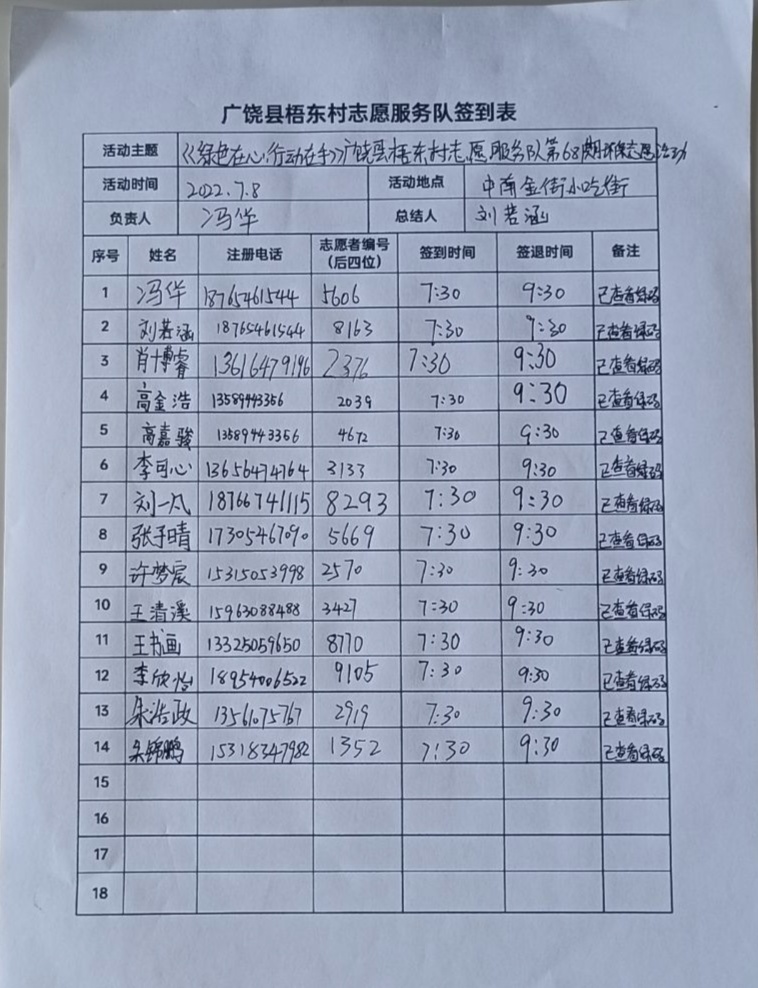 广饶县梧东村志愿服务队签到表
活动主题 《绿色在心,行动在手》广饶县梧东村志愿服务队第68期环保志愿活动
活动时间 2022.7.8 活动地点 中南金街小吃街
负责人 冯华 总结人 刘若涵
序号 姓名 注册电话 志愿者编号(后四位) 签到时间 签退时间 备注
1 冯华 18765461544 5606 7:30 9:30 已查看绿码
2 刘若涵 18765461544 8163 7:30 9:30 已查看绿码
3 肖博睿 13616479196 2376 7:30 9:30 已查看绿码
4 高金浩 13589443356 2039 7:30 9:30 已查看绿码
5 高嘉骏 13589443356 4672 7:30 9:30 已查看绿码
6 李可心 13656474764 3133 7:30 9:30 已查看绿码
7 刘一凡 18766741115 8293 7:30 9:30 已查看绿码
8 张子晴 17305467090 5669 7:30 9:30 已查看绿码
9 许梦宸 15315053998 2570 7:30 9:30 已查看绿码
10 王清溪 15963088488 3427 7:30 9:30 已查看绿码
11 王书画 13325059650 8770 7:30 9:30 已查看绿码
12 李欣怡 18954006522 9105 7:30 9:30 已查看绿码
13 朱浩政 13561075767 2919 7:30 9:30 已查看绿码
14 朱锦鹏 15318347982 1352 7:30 9:30 已查看绿码
15
16
17
18